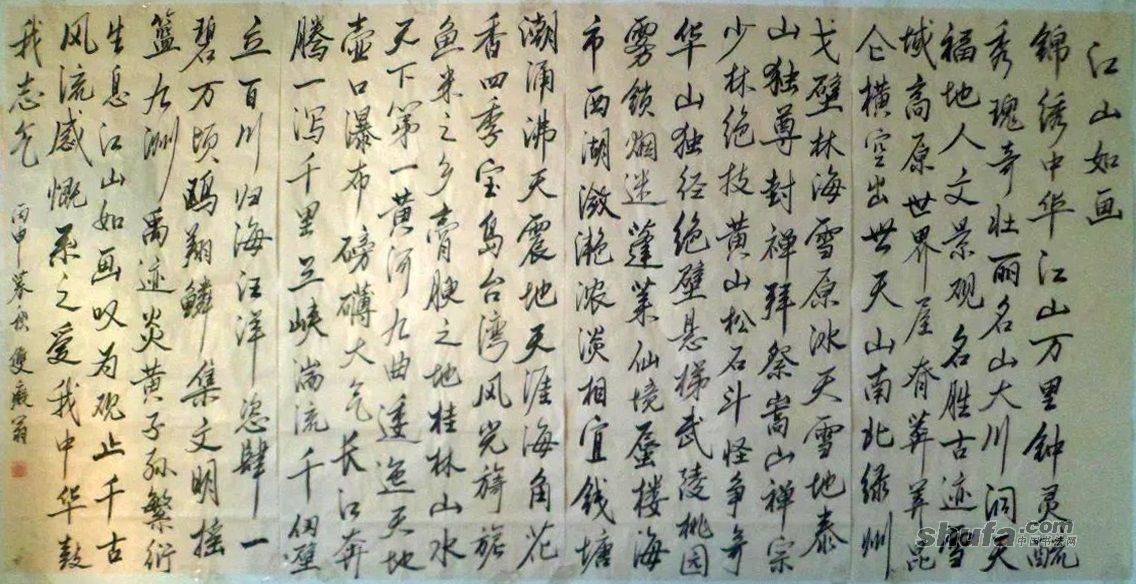 江山如画
锦绣中华江山万里钟灵毓
秀瑰奇壮丽名山大川洞天
福地人文景观名胜古迹雪
域高原世界屋脊莽莽昆
仑横空出世天山南北绿洲
戈壁林海雪原冰天雪地泰
山独尊封禅拜祭嵩山禅宗
少林绝技黄山松石斗怪争奇
华山独径绝壁悬梯武陵桃园
雾锁烟迷蓬莱仙境蜃楼海
市西湖潋滟浓淡相宜钱塘
潮涌沸天震地天涯海角花
香四季宝岛台湾风光旖旎
鱼米之乡膏腴之地桂林山水
天下第一黄河九曲逶迤天地
壶口瀑布磅礴大气长江奔
腾一泻千里三峡湍流千仞壁
立百川归海汪洋恣肆一
碧万顷鸥翔鳞集文明摇
篮九洲禹迹炎黄子孙繁衍
生息江山如画叹为观止千古
风流感慨系之爱我中华鼓
我志气
丙申暮秋
shufa.com
中国书法网